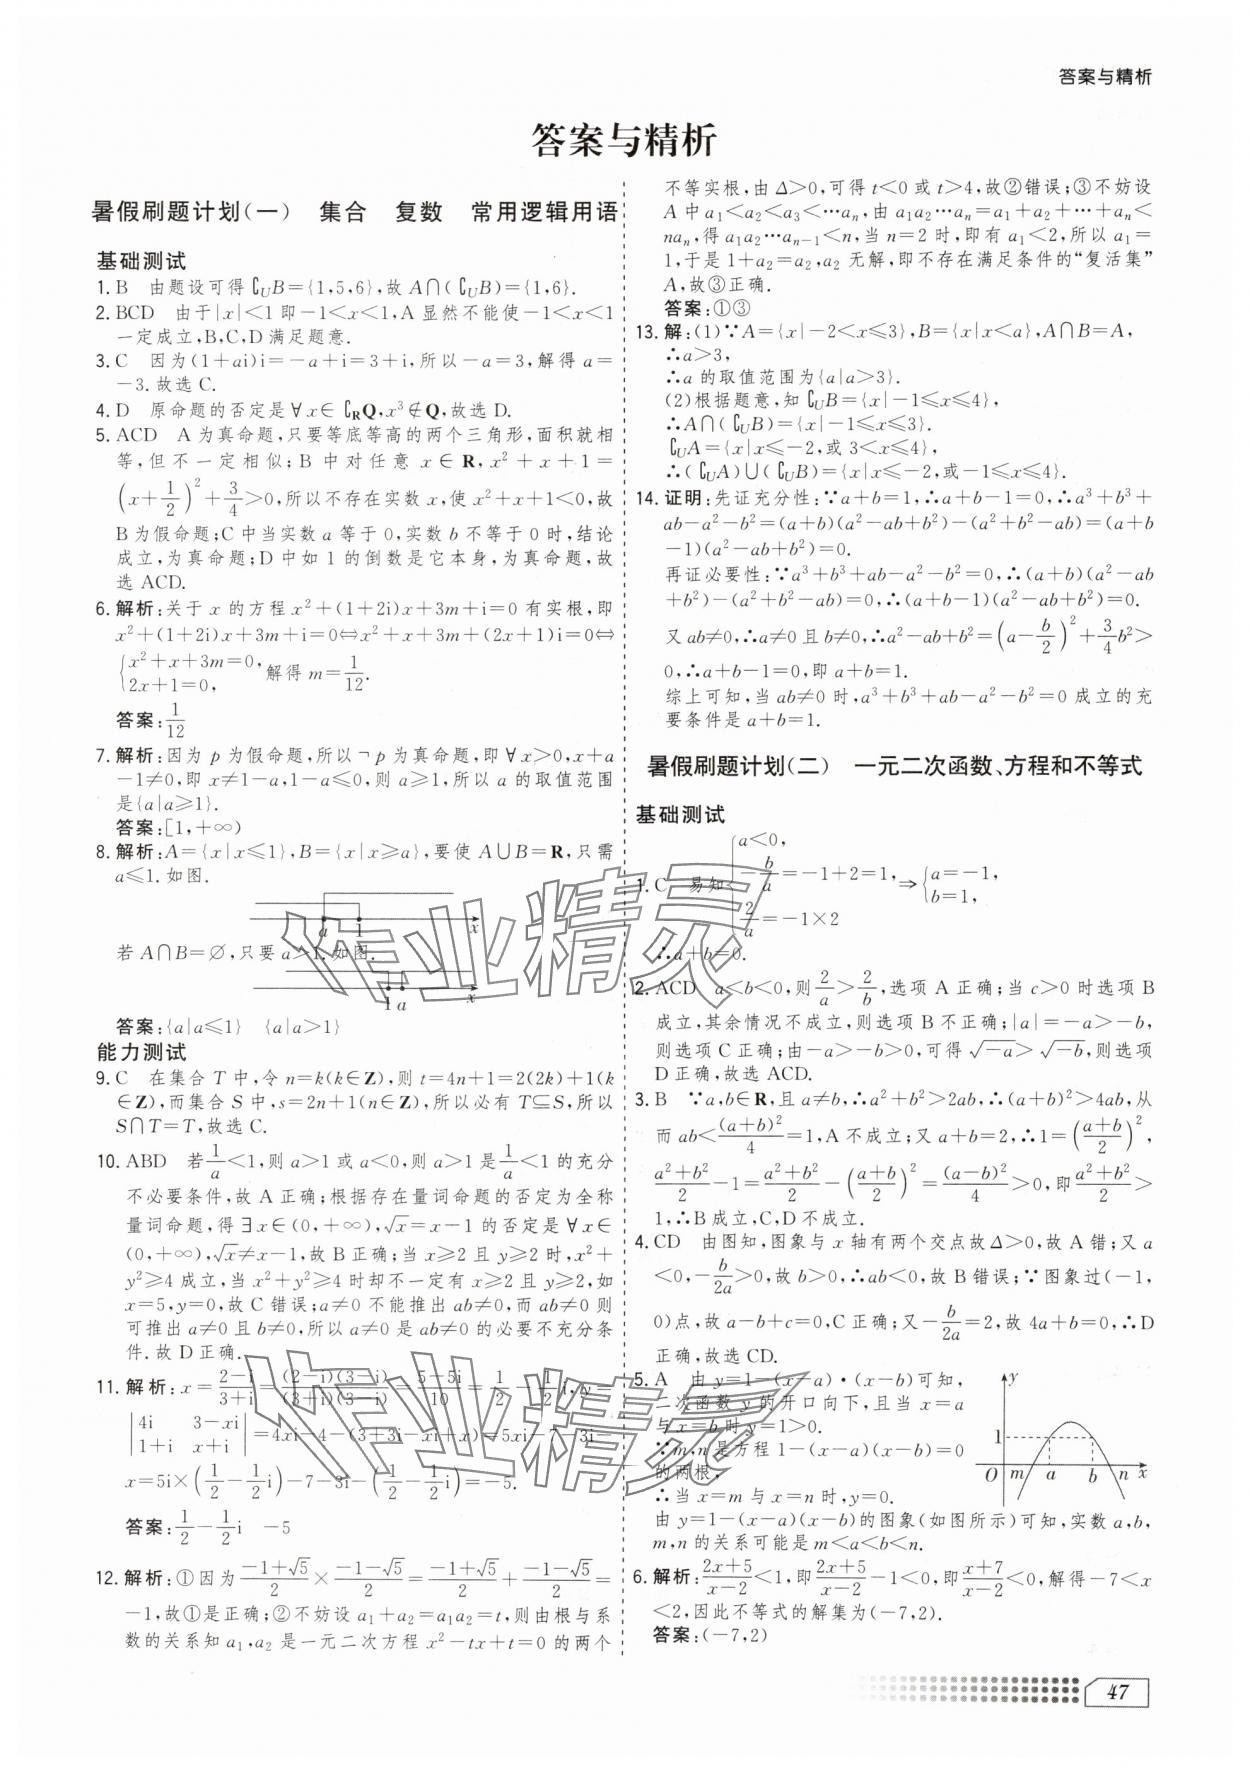 答案与精析
答案与精析
暑假刷题计划(一) 集合 复数 常用逻辑用语
基础测试
1. B 由题设可得∁UB={1,5,6},故A∩(∁UB)={1,6}.
2. BCD 由于|x|<1即-1<x<1,A显然不能使-1<x<1
一定成立,B,C,D满足题意.
3. C 因为(1+ai)i=-a+i=3+i,所以-a=3,解得a=
-3.故选C.
4. D 原命题的否定是∀x∈∁RQ,x³∉Q,故选D.
5. ACD A为真命题,只要等底等高的两个三角形,面积就相
等,但不一定相似;B中对任意x∈R,x²+x+1=
(x+1/2)²+3/4>0,所以不存在实数x,使x²+x+1<0,故
B为假命题;C中当实数a等于0,实数b不等于0时,结论
成立,为真命题;D中如1的倒数是它本身,为真命题,故
选ACD.
6. 解析:关于x的方程x²+(1+2i)x+3m+i=0有实根,即
x²+(1+2i)x+3m+i=0⇔x²+x+3m+(2x+1)i=0⇔
{x²+x+3m=0, 2x+1=0, 解得m=1/12.
答案:1/12
7. 解析:因为p为假命题,所以¬p为真命题,即∀x>0,x+a
-1≠0,即x≠1-a,1-a≤0,则a≥1,所以a的取值范围
是{a|a≥1}.
答案:[1,+∞)
8. 解析:A={x|x≤1},B={x|x≥a},要使A∪B=R,只需
a≤1.如图.
a 1 x
若A∩B=∅,只要a>1.如图.
1 a x
答案:{a|a≤1} {a|a>1}
能力测试
9. C 在集合T中,令n=k(k∈Z),则t=4n+1=2(2k)+1(k
∈Z),而集合S中,s=2n+1(n∈Z),所以必有T⊆S,所以
S∩T=T,故选C.
10. ABD 若1/a<1,则a>1或a<0,则a>1是1/a<1的充分
不必要条件,故A正确;根据存在量词命题的否定为全称
量词命题,得∃x∈(0,+∞),√x=x-1的否定是∀x∈
(0,+∞),√x≠x-1,故B正确;当x≥2且y≥2时,x²+
y²≥4成立,当x²+y²≥4时却不一定有x≥2且y≥2,如
x=5,y=0,故C错误;a≠0不能推出ab≠0,而ab≠0则
可推出a≠0且b≠0,所以a≠0是ab≠0的必要不充分条
件.故D正确.
11. 解析:x=(2-i)/(3+i)=(2-i)(3-i)/(3+i)(3-i)=(5-5i)/10=1/2-1/2i,y=
|4i 3-xi|
|1+i x+i|=4xi-4-(3+3i-xi+x)=5xi-7-3i-
x=5i×(1/2-1/2i)-7-3i-(1/2-1/2i)=-5.
答案:1/2-1/2i -5
12. 解析:①因为(-1+√5)/2×(-1-√5)/2=(-1+√5)/2+(-1-√5)/2=
-1,故①是正确;②不妨设a₁+a₂=a₁a₂=t,则由根与系
数的关系知a₁,a₂是一元二次方程x²-tx+t=0的两个
不等实根,由Δ>0,可得t<0或t>4,故②错误;③不妨设
A中a₁<a₂<a₃<⋯aₙ,由a₁a₂⋯aₙ=a₁+a₂+⋯+aₙ<
naₙ,得a₁a₂⋯aₙ₋₁<n,当n=2时,即有a₁<2,所以a₁=
1,于是1+a₂=a₂,a₂无解,即不存在满足条件的“复活集”
A,故③正确.
答案:①③
13. 解:(1)∵A={x|-2<x≤3},B={x|x<a},A∩B=A,
∴a>3,
∴a的取值范围为{a|a>3}.
(2)根据题意,知∁UB={x|-1≤x≤4},
∴A∩(∁UB)={x|-1≤x≤3}.
∁UA={x|x≤-2,或3<x≤4},
∴(∁UA)∪(∁UB)={x|x≤-2,或-1≤x≤4}.
14. 证明:先证充分性:∵a+b=1,∴a+b-1=0,∴a³+b³+
ab-a²-b²=(a+b)(a²-ab+b²)-(a²+b²-ab)=(a+b
-1)(a²-ab+b²)=0.
再证必要性:∵a³+b³+ab-a²-b²=0,∴(a+b)(a²-ab
+b²)-(a²+b²-ab)=0,∴(a+b-1)(a²-ab+b²)=0.
又ab≠0,∴a≠0且b≠0,∴a²-ab+b²=(a-b/2)²+3/4b²>
0,∴a+b-1=0,即a+b=1.
综上可知,当ab≠0时,a³+b³+ab-a²-b²=0成立的充
要条件是a+b=1.
暑假刷题计划(二) 一元二次函数、方程和不等式
基础测试
1. C 易知{a<0, -b/a=-1+2=1, 2/a=-1×2 ⇒{a=-1, b=1,
∴a+b=0.
2. ACD a<b<0,则2/a>2/b,选项A正确;当c>0时选项B
成立,其余情况不成立,则选项B不正确;|a|=-a>-b,
则选项C正确;由-a>-b>0,可得√-a>√-b,则选项
D正确,故选ACD.
3. B ∵a,b∈R,且a≠b,∴a²+b²>2ab,∴(a+b)²>4ab,从
而ab<(a+b)²/4=1,A不成立;又a+b=2,∴1=((a+b)/2)²,
(a²+b²)/2-1=(a²+b²)/2-((a+b)/2)²=(a-b)²/4>0,即(a²+b²)/2>
1,∴B成立,C,D不成立.
4. CD 由图知,图象与x轴有两个交点故Δ>0,故A错;又a
<0,-b/2a>0,故b>0,∴ab<0,故B错误;∵图象过(-1,
0)点,故a-b+c=0,C正确;又-b/2a=2,故4a+b=0,∴D
正确,故选CD.
5. A 由y=1-(x-a)·(x-b)可知,
二次函数y的开口向下,且x=a
与x=b时y=1>0.
∵m,n是方程1-(x-a)(x-b)=0
的两根,
∴当x=m与x=n时,y=0.
y 1 O m a b n x
由y=1-(x-a)(x-b)的图象(如图所示)可知,实数a,b,
m,n的关系可能是m<a<b<n.
6. 解析:(2x+5)/(x-2)<1,即(2x+5)/(x-2)-1<0,即(x+7)/(x-2)<0,解得-7<x
<2,因此不等式的解集为(-7,2).
答案:(-7,2)
47
作业精灵
作业精灵